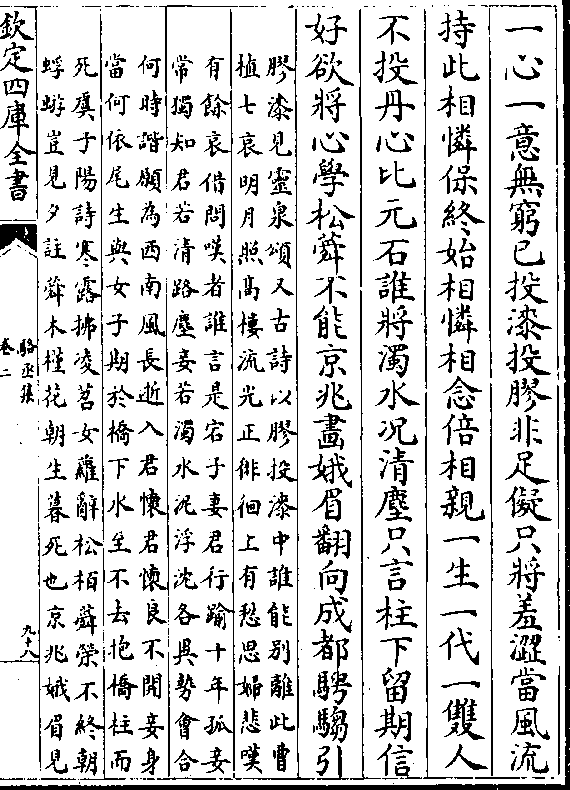 一心一意無窮已投漆投膠非足儗只將羞澀當風流
持此相憐保終始相憐相念倍相親一生一代一雙人
不投丹心比元石誰將濁水况清塵只言柱下留期信
好欲將心學松蕣不能京兆畫娥眉翻向成都騁騶引
膠漆見靈泉頌又古詩以膠投漆中誰能别離此曹
植七哀明月照高樓流光正徘徊上有愁思婦悲嘆
有餘哀借問嘆者誰言是宕子妻君行踰十年孤妾
常獨知君若清路塵妾若濁水泥浮沈各異勢會合
何時諧願為西南風長逝入君懷君懷良不開妾身
當何依尾生與女子期於橋下水至不去抱橋柱而
死虞子陽詩寒露拂凌苕女蘿辭松柏蕣榮不終朝
蜉蝣豈見夕註蕣木槿花朝生暮死也京兆娥眉見
欽定四庫全書
駱丞集
卷二
九十八